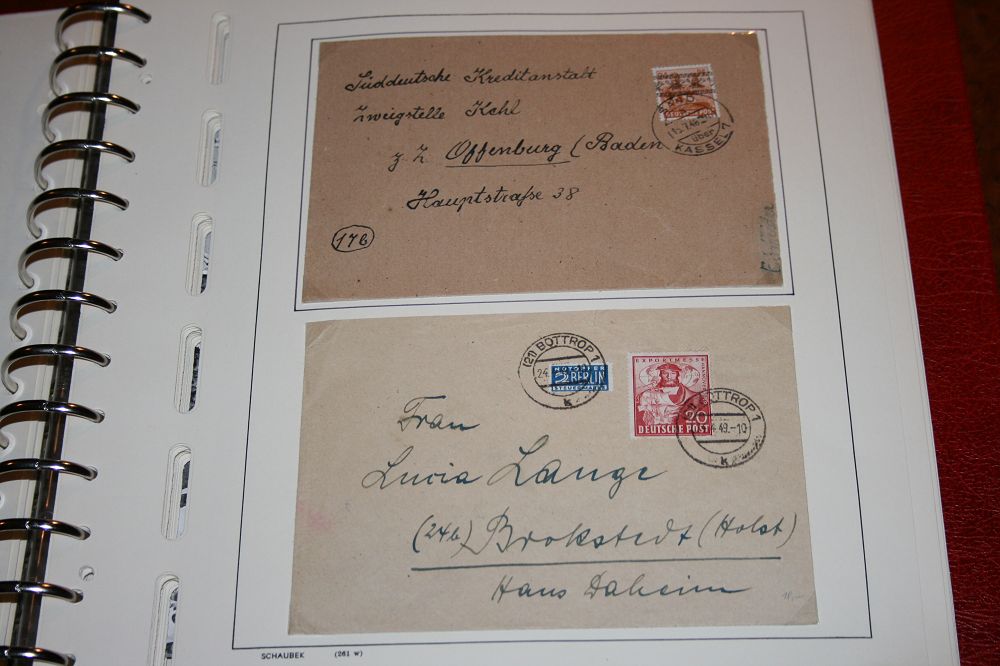 Süddeutsche Kreditanstalt
Zweigstelle Kehl
z. Z. Offenburg (Baden
Hauptstraße 38
17b
24
DEUTSCHE POST
über
KASSEL 7
(21) BOTTROP 1
24.
k
NOTOPFER
2 BERLIN
STEUERMARKE
EXPORTMESSE
20
DEUTSCHE POST
BOTTROP 1
49.-10
k
Frau
Lucia Lange
(24b) Brokstedt (Holst)
Hans Daheim
SCHAUBEK (261 w)